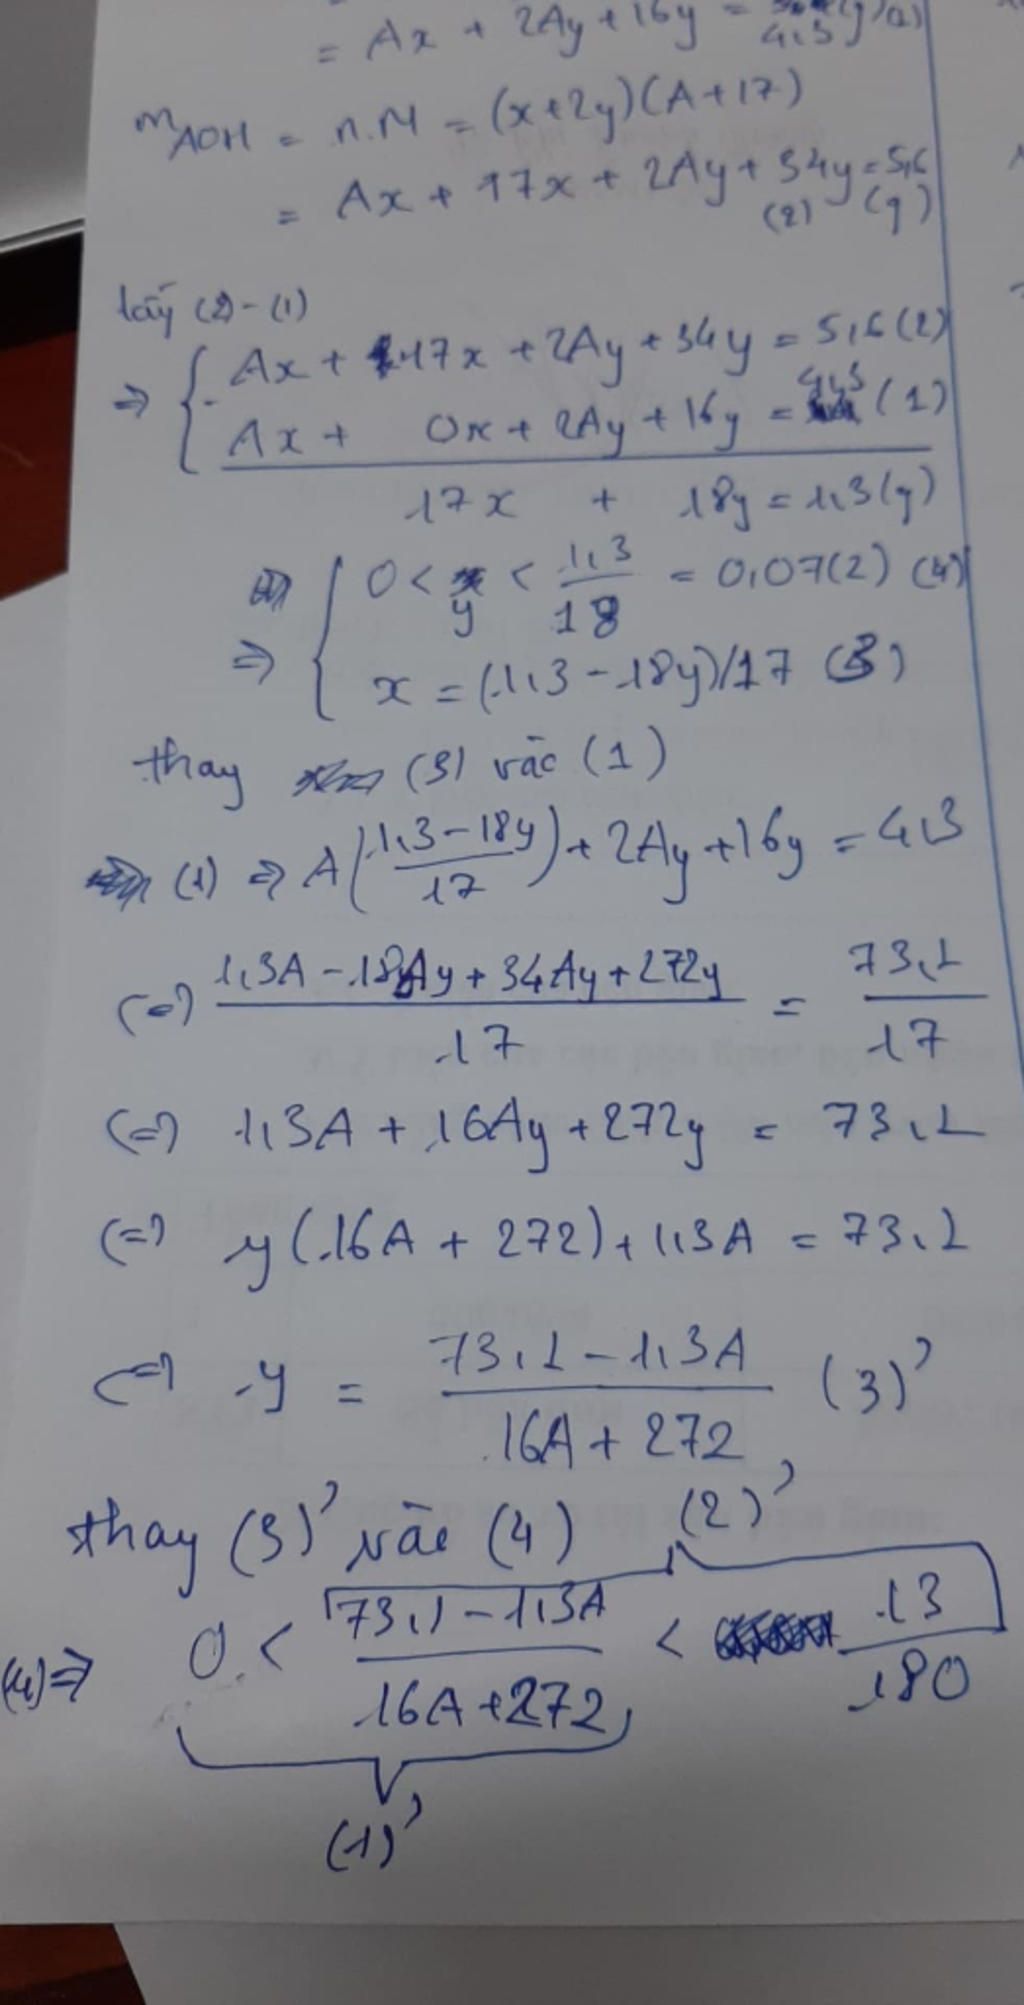 = Ax + 2Ay + 16y = 4,3 (1)
mAOH = n.M = (x+2y)(A+17)
= Ax + 17x + 2Ay + 34y = 5,6
(2) (g)
lấy (2) - (1)
=> { Ax + 17x + 2Ay + 34y = 5,6 (2)
- Ax + 0x + 2Ay + 16y = 4,3 (1)
17x + 18y = 1,3 (g)
=> { 0 < y < 1,3/18 = 0,07(2) (4)
x = (1,3 - 18y)/17 (3)
thay (3) vào (1)
(1) => A((1,3 - 18y)/17) + 2Ay + 16y = 4,3
(=) (1,3A - 18Ay + 34Ay + 272y)/17 = 73,1/17
(=) 1,3A + 16Ay + 272y = 73,1
(=) y(16A + 272) + 1,3A = 73,1
(=) y = (73,1 - 1,3A)/(16A + 272) (3)'
thay (3)' vào (4) (2)'
(4) => 0 < (73,1 - 1,3A)/(16A + 272) < 13/180
(1)'